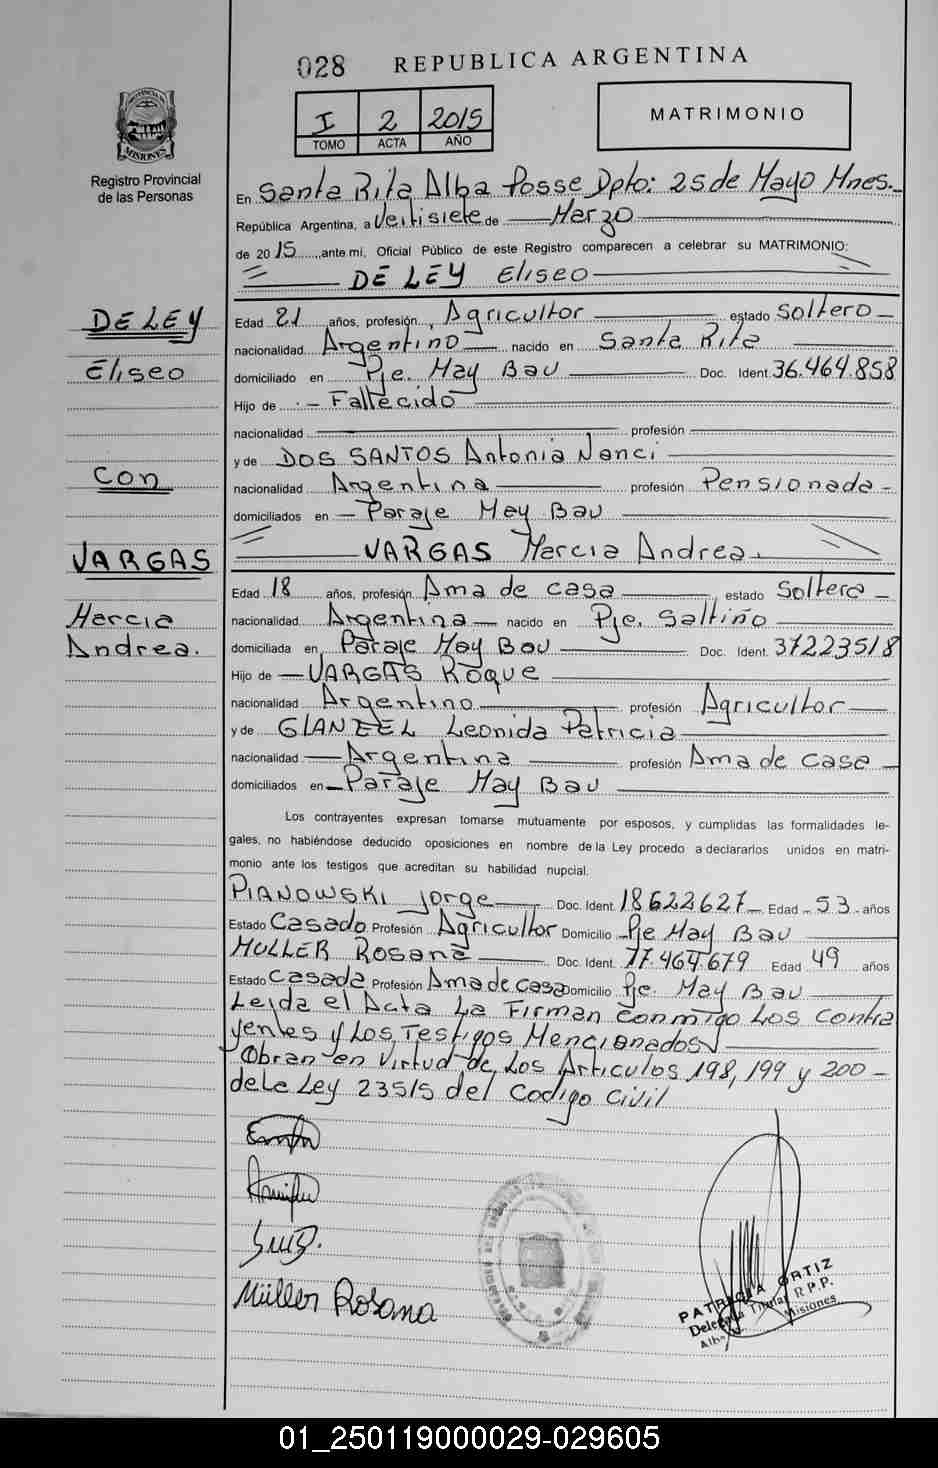 028 REPUBLICA ARGENTINA
I 2 2015
TOMO ACTA AÑO
MATRIMONIO
PROVINCIA DE MISIONES
Registro Provincial
de las Personas
En Santa Rita Alba Posse Dpto: 25 de Mayo Mnes.
República Argentina, a Veitisiete de Marzo
de 2015, ante mí, Oficial Público de este Registro comparecen a celebrar su MATRIMONIO:
DE LEY Eliseo
DE LEY
Eliseo
Con
VARGAS
Marcia
Andrea.
Edad 21 años, profesión, Agricultor estado Soltero
nacionalidad Argentino nacido en Santa Rita
domiciliado en Pje. May Bau Doc. Ident. 36.464.858
Hijo de Fallecido
nacionalidad profesión
y de DOS SANTOS Antonia Nanci
nacionalidad Argentina profesión Pensionada
domiciliados en Paraje May Bau
VARGAS Marcia Andrea.
Edad 18 años, profesión Ama de casa estado Soltera
nacionalidad Argentina nacido en Pje. Saltiño
domiciliada en Paraje May Bau Doc. Ident. 37223518
Hijo de VARGAS Roque
nacionalidad Argentino profesión Agricultor
y de GLANZEL Leonida Patricia
nacionalidad Argentina profesión Ama de Casa
domiciliados en Paraje May Bau
Los contrayentes expresan tomarse mutuamente por esposos, y cumplidas las formalidades le-
gales, no habiéndose deducido oposiciones en nombre de la Ley procedo a declararlos unidos en matri-
monio ante los testigos que acreditan su habilidad nupcial.
PIANOWSKI Jorge Doc. Ident. 18622627 Edad 53 años
Estado Casado Profesión Agricultor Domicilio Pje May Bau
MULLER Rosana Doc. Ident. 17.464.679 Edad 49 años
Estado Casada Profesión Ama de casa Domicilio Pje. May Bau
Leida el Acta La Firman conmigo Los Contra
yentes y Los Testigos Mencionados
Obran en Virtud de Los Articulos 198, 199 y 200
de La Ley 23515 del Codigo Civil
Müller Rosana
PATRICIA ORTIZ
Delegada Titular R.P.P.
Misiones
01_250119000029-029605